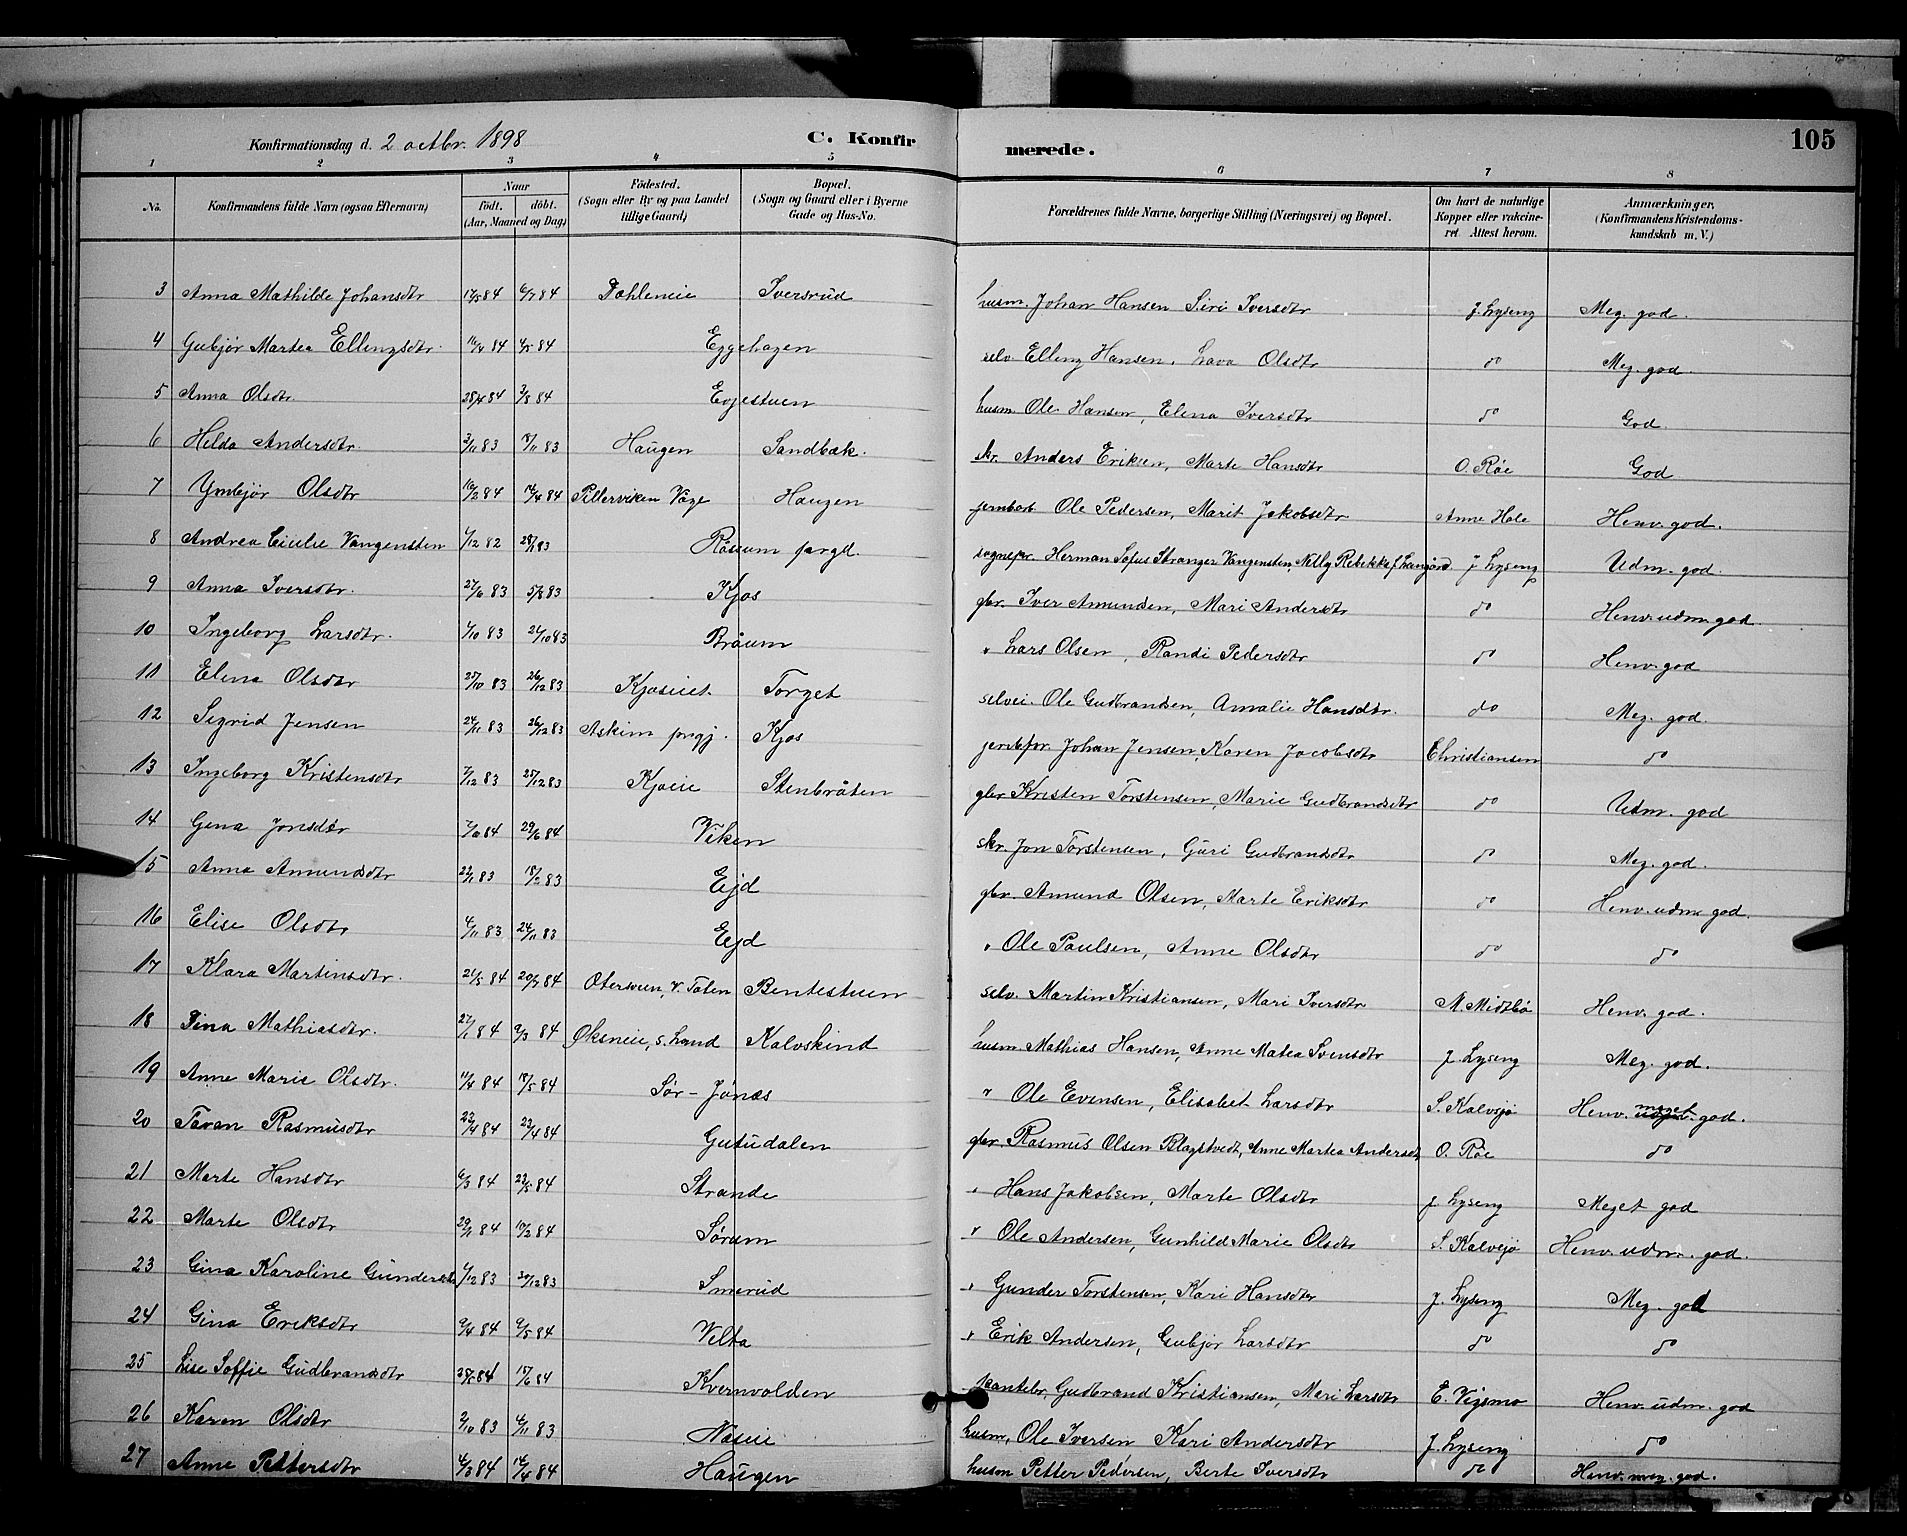 Konfirmationsdag d. 2 octbr. 1898 C. Konfir merede. 105
1 2 3 4 5 6 7 8
No. Konfirmandens fulde Navn (ogsaa Efternavn) Naar födt. döbt. (Aar, Maaned og Dag) Födested. (Sogn eller By og paa Landet tillige Gaard) Bopæl. (Sogn og Gaard eller i Byerne Gade og Hus-No. Forældrenes fulde Navne, borgerlige Stilling (Næringsvei) og Bopæl. Om havt de naturlige Kopper eller vakcineret Attest herom. Anmærkninger, (Konfirmandens Kristendomskundskab m. V.)
3 Anna Mathilde Johansdtr 17/5 84 6/7 84 Dahleneie Iversrud husm. Johan Hansen Siri Iversdtr J. Lyseng Meg. god.
4 Gubjør Martea Ellingsdtr. 16/4 84 4/5 84 Eggehagen selv. Elling Hansen, Lava Olsdtr do Meg. god.
5 Anna Olsdtr. 28/4 84 3/8 84 Evjestuen husm. Ole Hansen, Elena Iversdtr do God.
6 Helda Andersdtr. 3/11 83 18/11 83 Haugen Sandbæk. skr. Anders Eriksen, Marte Hansdtr O. Røe God
7 Ymbjør Olsdtr 16/2 84 14/4 84 Pillerviken Vage Haugen jernbarb. Ole Pedersen, Marit Jakobsdtr Anne Hole Henv. god.
8 Andrea Cicilie Vangensten 1/12 82 28/1 83 Råsum prgd. sognepr. Herman Sofus Stranger Vangensten, Nelly Rebekka f. Langård J. Lyseng Udm. god.
9 Anna Iversdtr. 27/6 83 5/8 83 Kjos gbr. Iver Amundsen, Mari Andersdtr do Henv. udm. god.
10 Ingeborg Larsdtr. 1/10 83 21/10 83 Bråum " Lars Olsen, Randi Pedersdtr do Henv. god
11 Elena Olsdtr 25/10 83 26/12 83 Kjoseiet. Torget selvei. Ole Gudbrandsen, Amalie Hansdtr. do Meg. god.
12 Sigrid Jensen 24/11 83 26/12 83 Askim prgj. Kjos jernbfor. Johan Jensen, Karen Jacobsdtr Christiansen do
13 Ingeborg Kristensdtr 7/12 83 25/12 83 Kjoeie Stenbråten gbr Kristen Torstensen, Marie Gudbrandsdtr do Udm. god
14 Gina Jonsdtr 7/6 84 29/6 84 Viken skr. Jon Torstensen, Guri Gudbrandsdtr do Meg. god.
15 Anna Amundsdtr 22/1 83 18/2 83 Eijd gbr. Amund Olsen, Marte Eriksdtr do Henv. udm god.
16 Elise Olsdtr 4/11 83 24/11 83 Eijd " Ole Paulsen, Anne Olsdtr do do
17 Klara Martinsdtr. 21/5 84 20/7 84 Otersveen, V. Toten Bentestuen selv. Martin Kristiansen, Mari Iversdtr M. Midtbø Henv. god.
18 Tina Mathiasdtr. 27/1 84 9/3 84 Øksneie, S. Land Kalvskind husm. Mathias Hansen, Anne Matea Svensdtr J. Lyseng Meg. god.
19 Anne Marie Olsdtr. 11/4 84 18/5 84 Sør-Jönæs " Ole Evensen, Elisabet Larsdtr S. Kalvsjø Henv. meget god.
20 Taran Rasmusdtr 22/4 84 23/4 84 Gutudalen gbr Rasmus Olsen Blagstvedt, Anne Martea Andersdt O. Røe do
21 Marte Hansdtr 6/3 84 22/5 84 Strande " Hans Jakobsen, Marte Olsdtr J. Lyseng Meget god
22 Marte Olsdtr 29/1 84 10/2 84 Sørum " Ole Andersen, Gunhild Marie Olsdtr S. Kalvsjø Henv. udm. god.
23 Gina Karoline Gundersdtr 1/12 83 30/12 83 Smerud " Gunder Torstensen, Kari Hansdtr J. Lyseng Meg. god
24 Gina Eriksdtr 9/4 84 9/5 84 Velta " Erik Andersen, Gubjør Larsdtr do do
25 Lise Soffie Gudbrandsdtr 84 15/6 84 Kvernvolden Gudbrand Kristiansen, Mari Larsdtr E. Vigsmo Henv. udm. god
26 Karen Olsdtr 2/10 83 4/11 83 Næseie husm, Ole Iversen Kari Andersdtr J. Lyseng do
27 Anne Pettersdtr 4/3 84 14/4 84 Haugen husm Petter Pedersen, Berte Iversdtr do Henv. meg. god.